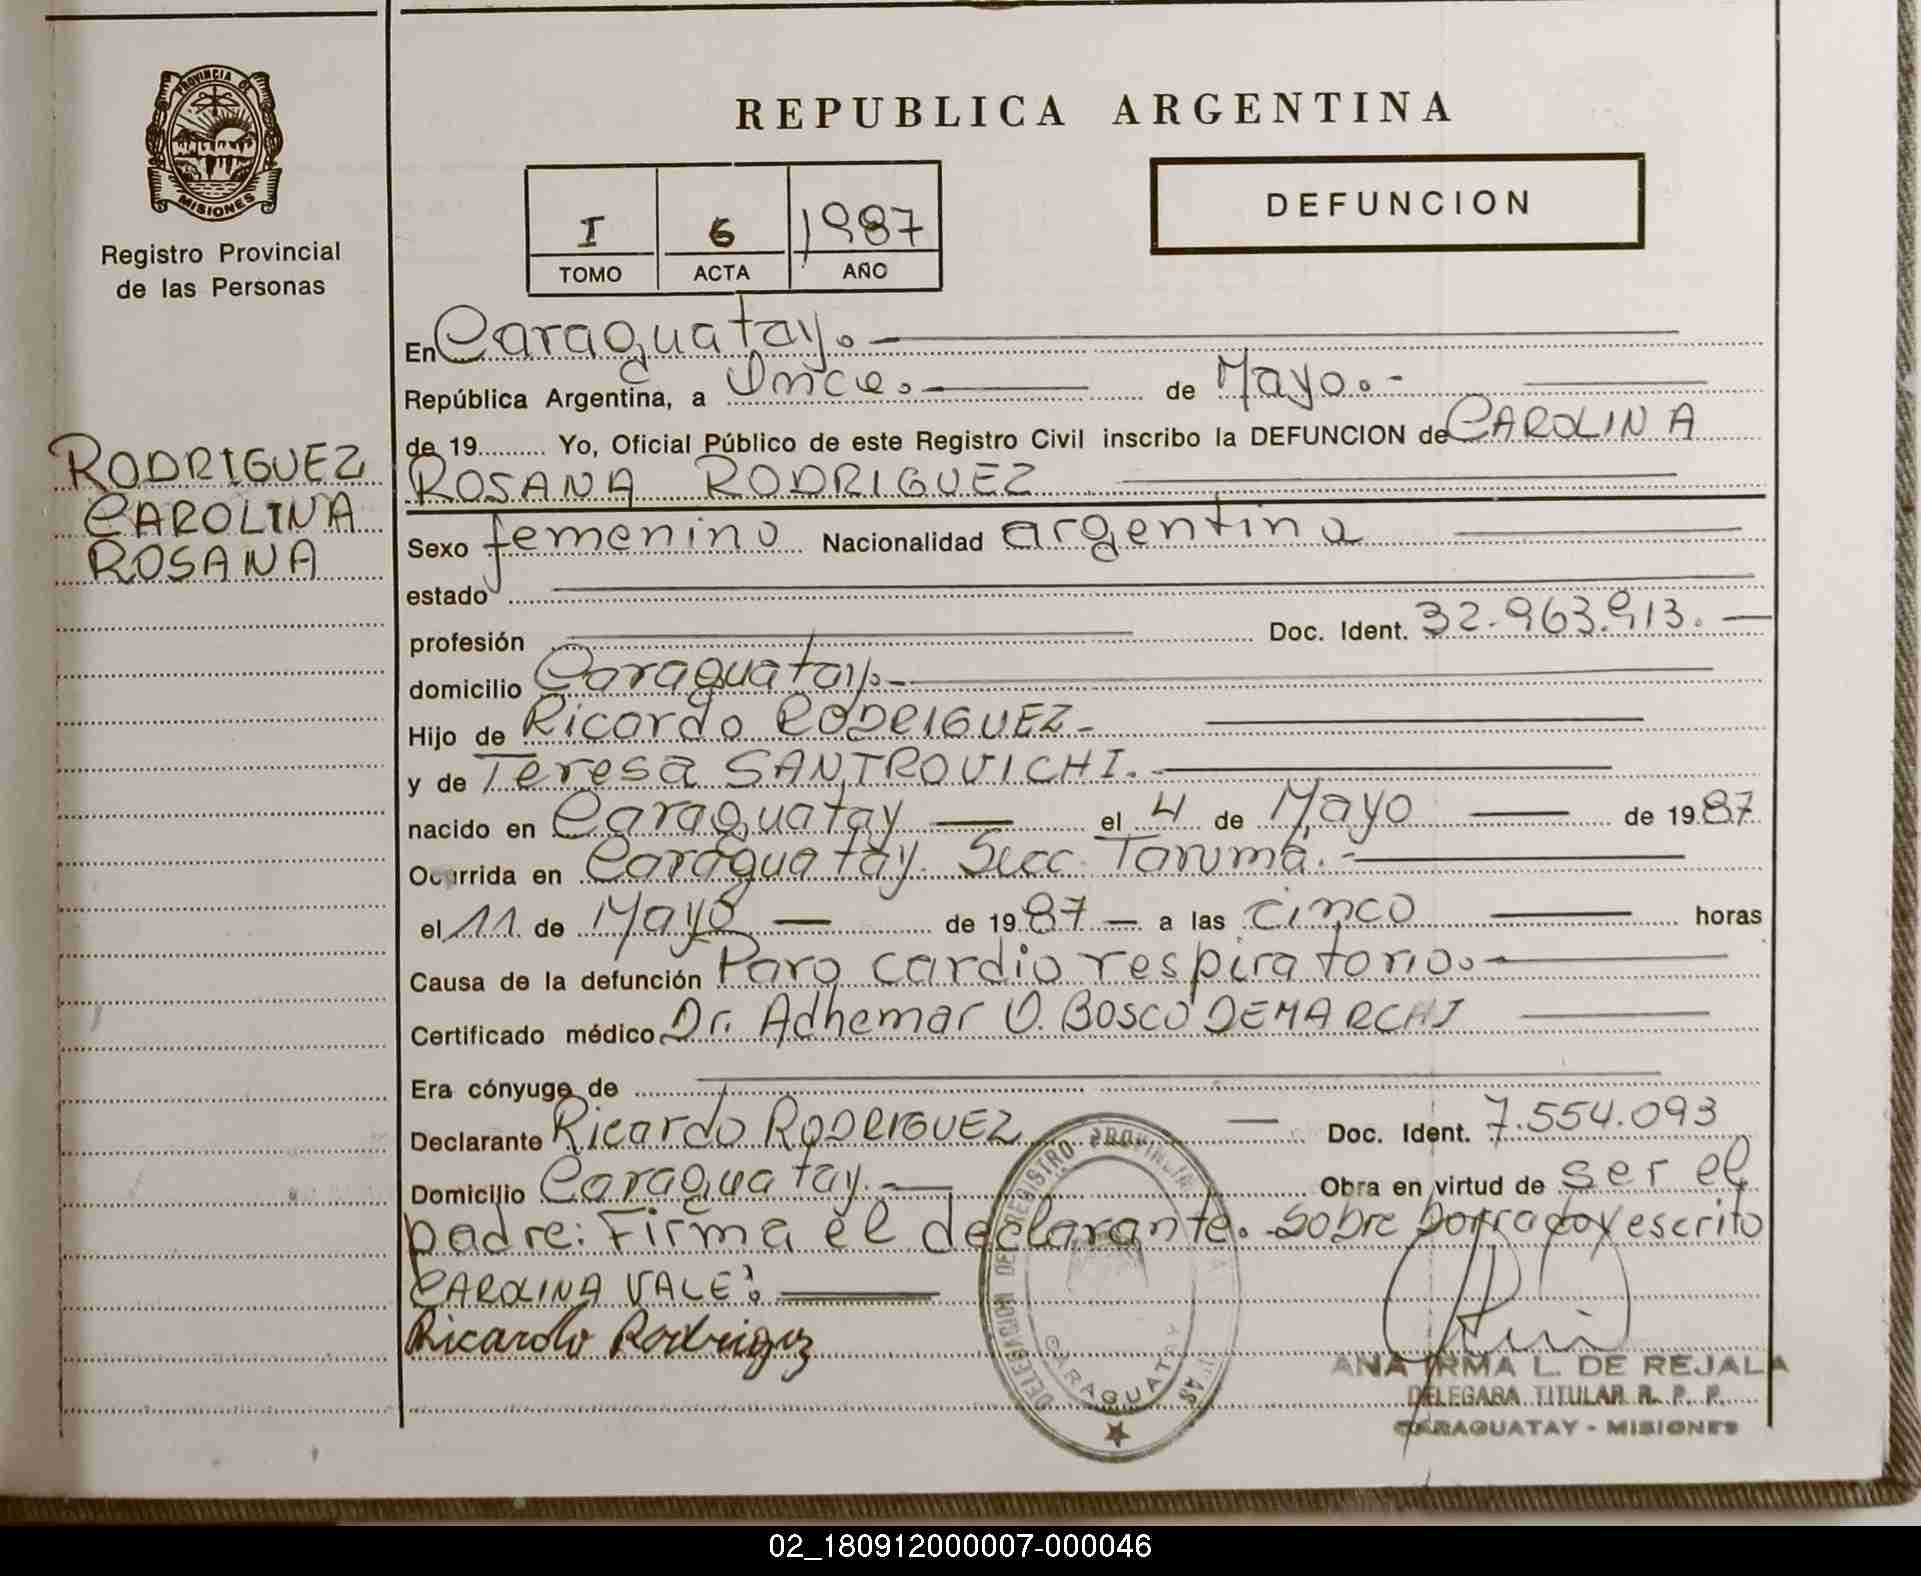 PROVINCIA DE
MISIONES
Registro Provincial
de las Personas
RODRIGUEZ
CAROLINA
ROSANA
REPUBLICA ARGENTINA
I 6 1987
TOMO ACTA AÑO
DEFUNCION
En Caraguatay.
República Argentina, a Once. de Mayo.-
de 19......... Yo, Oficial Público de este Registro Civil inscribo la DEFUNCION de CAROLINA
ROSANA RODRIGUEZ
Sexo femenino Nacionalidad argentina
estado
profesión Doc. Ident. 32.963.913.
domicilio Caraguatay.
Hijo de Ricardo RODRIGUEZ-
y de Teresa SANTROVICHI.
nacido en Caraguatay el 4 de Mayo de 1987
Ocurrida en Caraguatay. Secc. Taruma.-
el 11 de Mayo de 1987 a las cinco horas
Causa de la defunción Paro cardio respiratorio.
Certificado médico Dr. Adhemar O. BOSCO DEMARCHI
Era cónyuge de
Declarante Ricardo RODRIGUEZ Doc. Ident. 7.554.093
Domicilio Caraguatay. Obra en virtud de ser el
padre: Firma el declarante. Sobre borrado y escrito
CAROLINA VALE.
Ricardo Rodriguez
DELEGACION DE REGISTRO PROVINCIAL
CARAGUATAY
ANA IRMA L. DE REJALA
DELEGADA TITULAR R. P. P.
CARAGUATAY - MISIONES
02_180912000007-000046